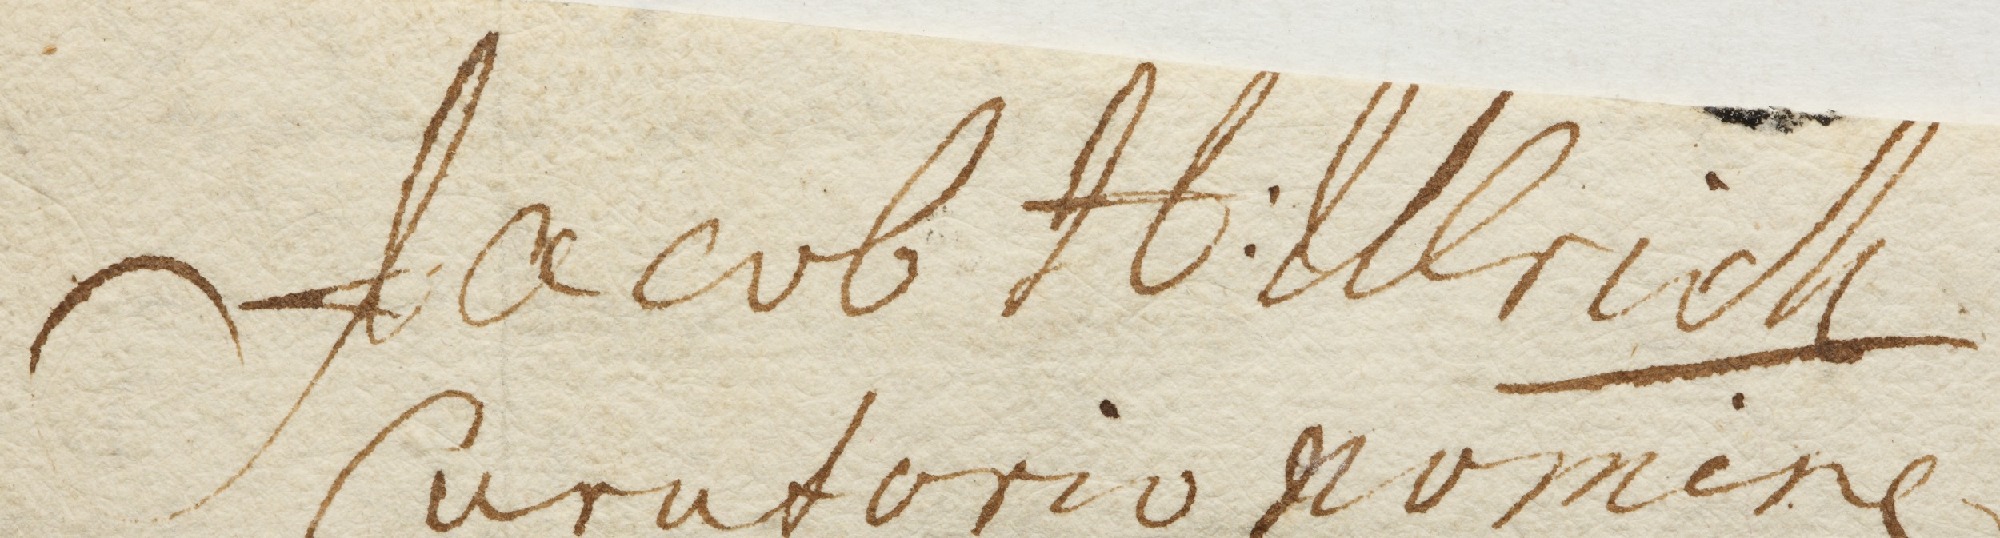 Jacob H: Ulrich
Curatorio nomine